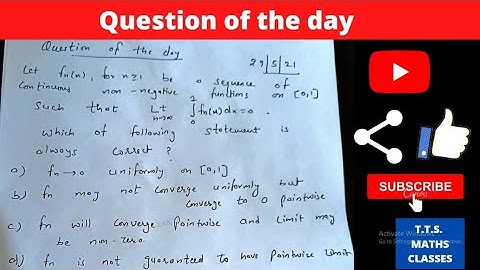 Question of the day
Question of the day
29/5/21
Let fn(x), for n≥1 be a sequence of
continuous non-negative functions on [0,1]
Such that Lt n→∞ ∫₀¹ fn(x)dx=0.
which of following statement is
always correct?
a) fn→0 uniformly on [0,1]
b) fn may not converge uniformly but
converge to 0 pointwise
c) fn will converge pointwise and limit may
be non-zero.
d) fn is not guaranteed to have pointwise limit
SUBSCRIBE
Canva
Activate Windows
Go to Settings
T.T.S.
MATHS
CLASSES